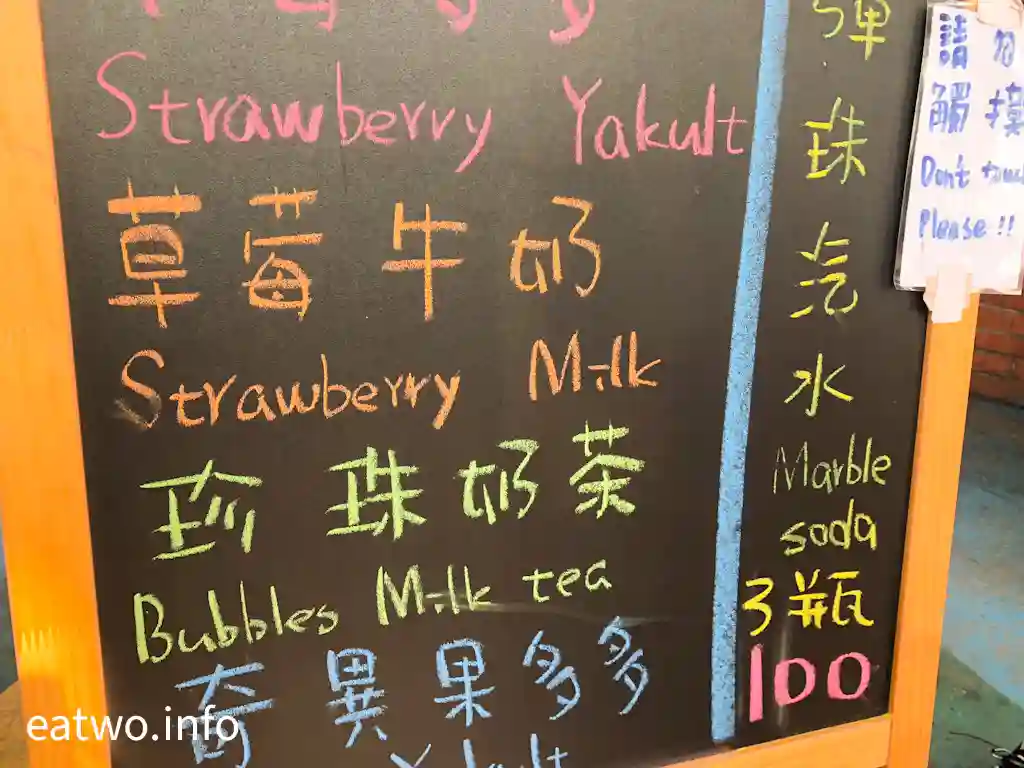 Strawberry Yakult
草莓牛奶
Strawberry Milk
珍珠奶茶
Bubbles Milk tea
奇異果多多
彈珠汽水
Marble
soda
3瓶
100
請勿
觸摸
Dont touch
Please !!
eatwo.info